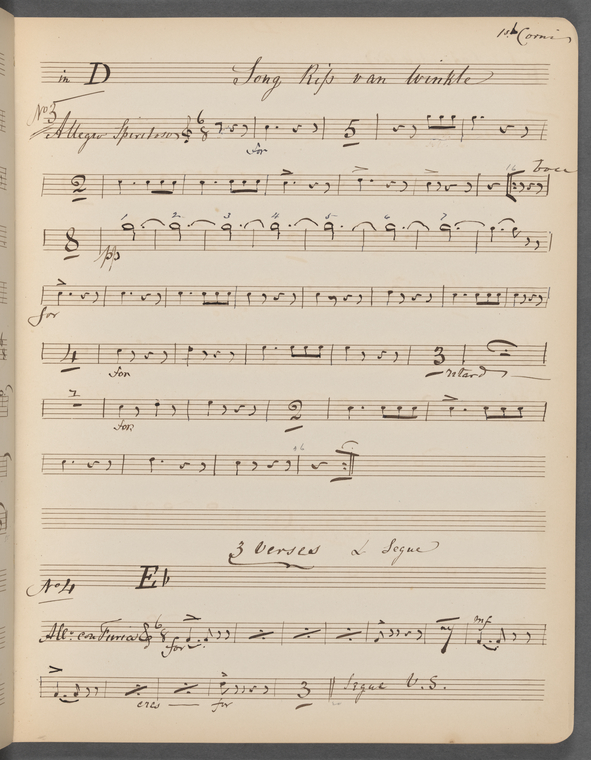 1st Corni
in D Song Rip van Winkle
No 3
Allegro Spiritoso 6 8 5
for
2 16 Voce
1 2 3 4 5 6 7
8
pp
for
4 3
for retard
7 2
for
16
3 Verses & Segue
No 4 Eb
Allo: con Furia 6 8 7 mf
for
3 Segue V.S.
cres — for